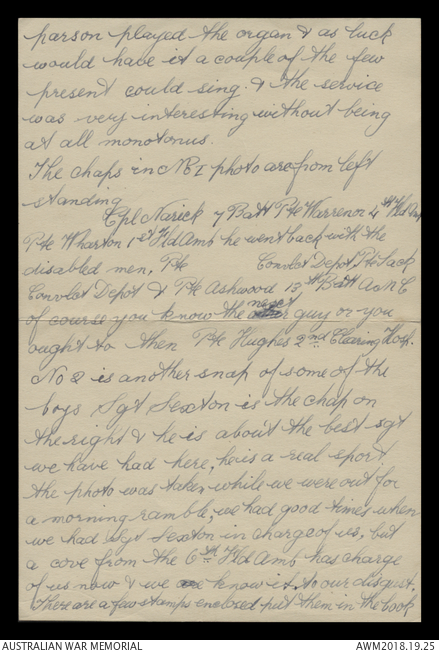 parson played the organ & as luck
would have it a couple of the few
present could sing. & the service
was very interesting without being
at all monotonus.
The chaps in No I photo are from left
standing
Cpl Narick 7 Batt Pte Warrenon 4th Fld Amb
Pte Wharton 1st Fld Amb he went back with the
disabled men, Pte Convlct Depot, Pte Lack
Convlct Depot & Pte Ashwood 13th Batt A.A.M.C
of course you know the next guy or you
ought to then Pte Hughes 2nd Clearing Hosp.
No 2 is another snap of some of the
boys Sgt Sexton is the chap on
the right & he is about the best sgt
we have had here, he is a real sport
the photo was taken while we were out for
a morning ramble, we had good times when
we had Sgt Sexton in charge of us, but
a cove from the 6th Fld Amb has charge
of us now & we know it, to our disgust.
There are a few stamps enclosed put them in the book
AUSTRALIAN WAR MEMORIAL
AWM2018.19.25